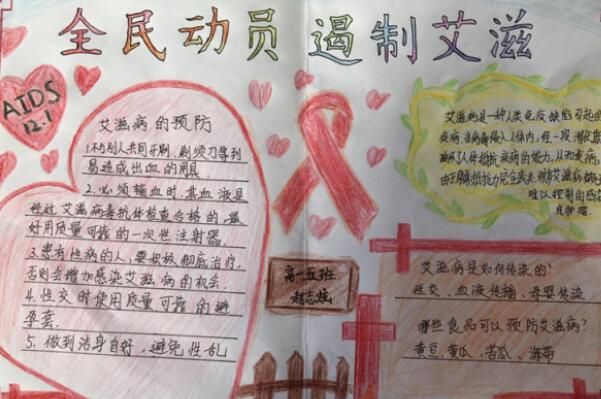 全民动员 遏制艾滋
AIDS
12.1
艾滋病的预防
1.不与别人共同牙刷、剃须刀等到
易造成出血的用具
2.必须输血时,其血液是
经过艾滋病毒抗体检查合格的.最
好用质量可靠的一次性注射器.
3.患有性病的人,要积极彻底治疗,
否则会增加感染艾滋病的机会.
4.性交时使用质量可靠的避
孕套.
5.做到洁身自好,避免性乱
高一五班
赵志炫
艾滋病是一种人类免疫缺陷引起的
疾病,当病毒侵入人体内,经一段潜伏
抵抗疾病的能力,从而
由于
难以控制的感
艾滋病是如何传染的?
性交、血液传输、母婴传染
哪些食品可以预防艾滋病?
黄豆、黄瓜、苦瓜、海带